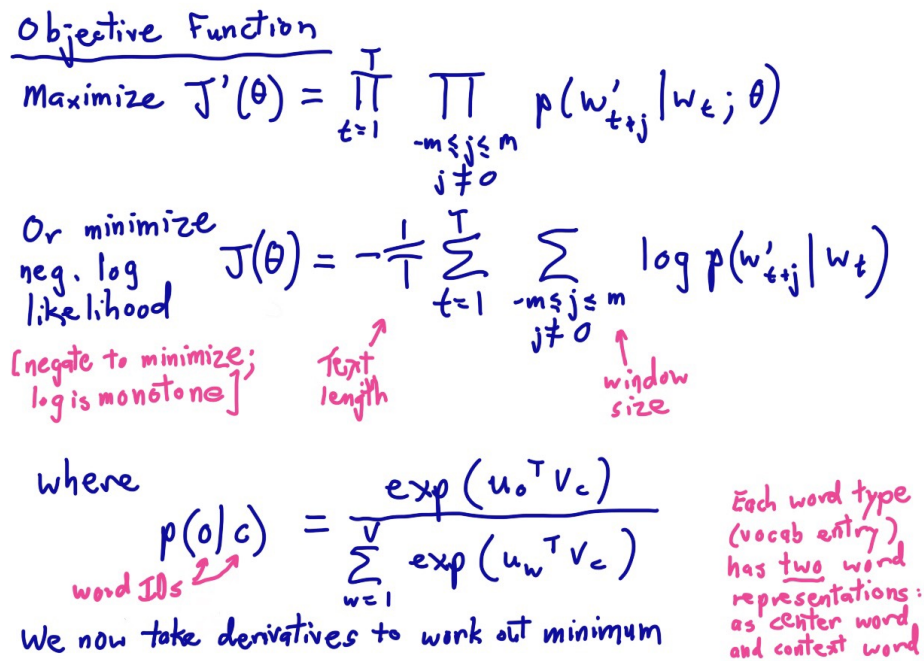 Objective Function
Maximize J'(θ) = ∏_{t=1}^{T} ∏_{-m≤j≤m, j≠0} p(w'_{t+j}|w_t; θ)
Or minimize
neg. log
likelihood
J(θ) = -1/T ∑_{t=1}^{T} ∑_{-m≤j≤m, j≠0} log p(w'_{t+j}|w_t)
[negate to minimize;
log is monotone]
Text
length
window
size
where
p(o|c) = exp(u_o^T v_c) / ∑_{w=1}^{V} exp(u_w^T v_c)
word IDs
Each word type
(vocab entry)
has two word
representations:
as center word
and context word
We now take derivatives to work out minimum